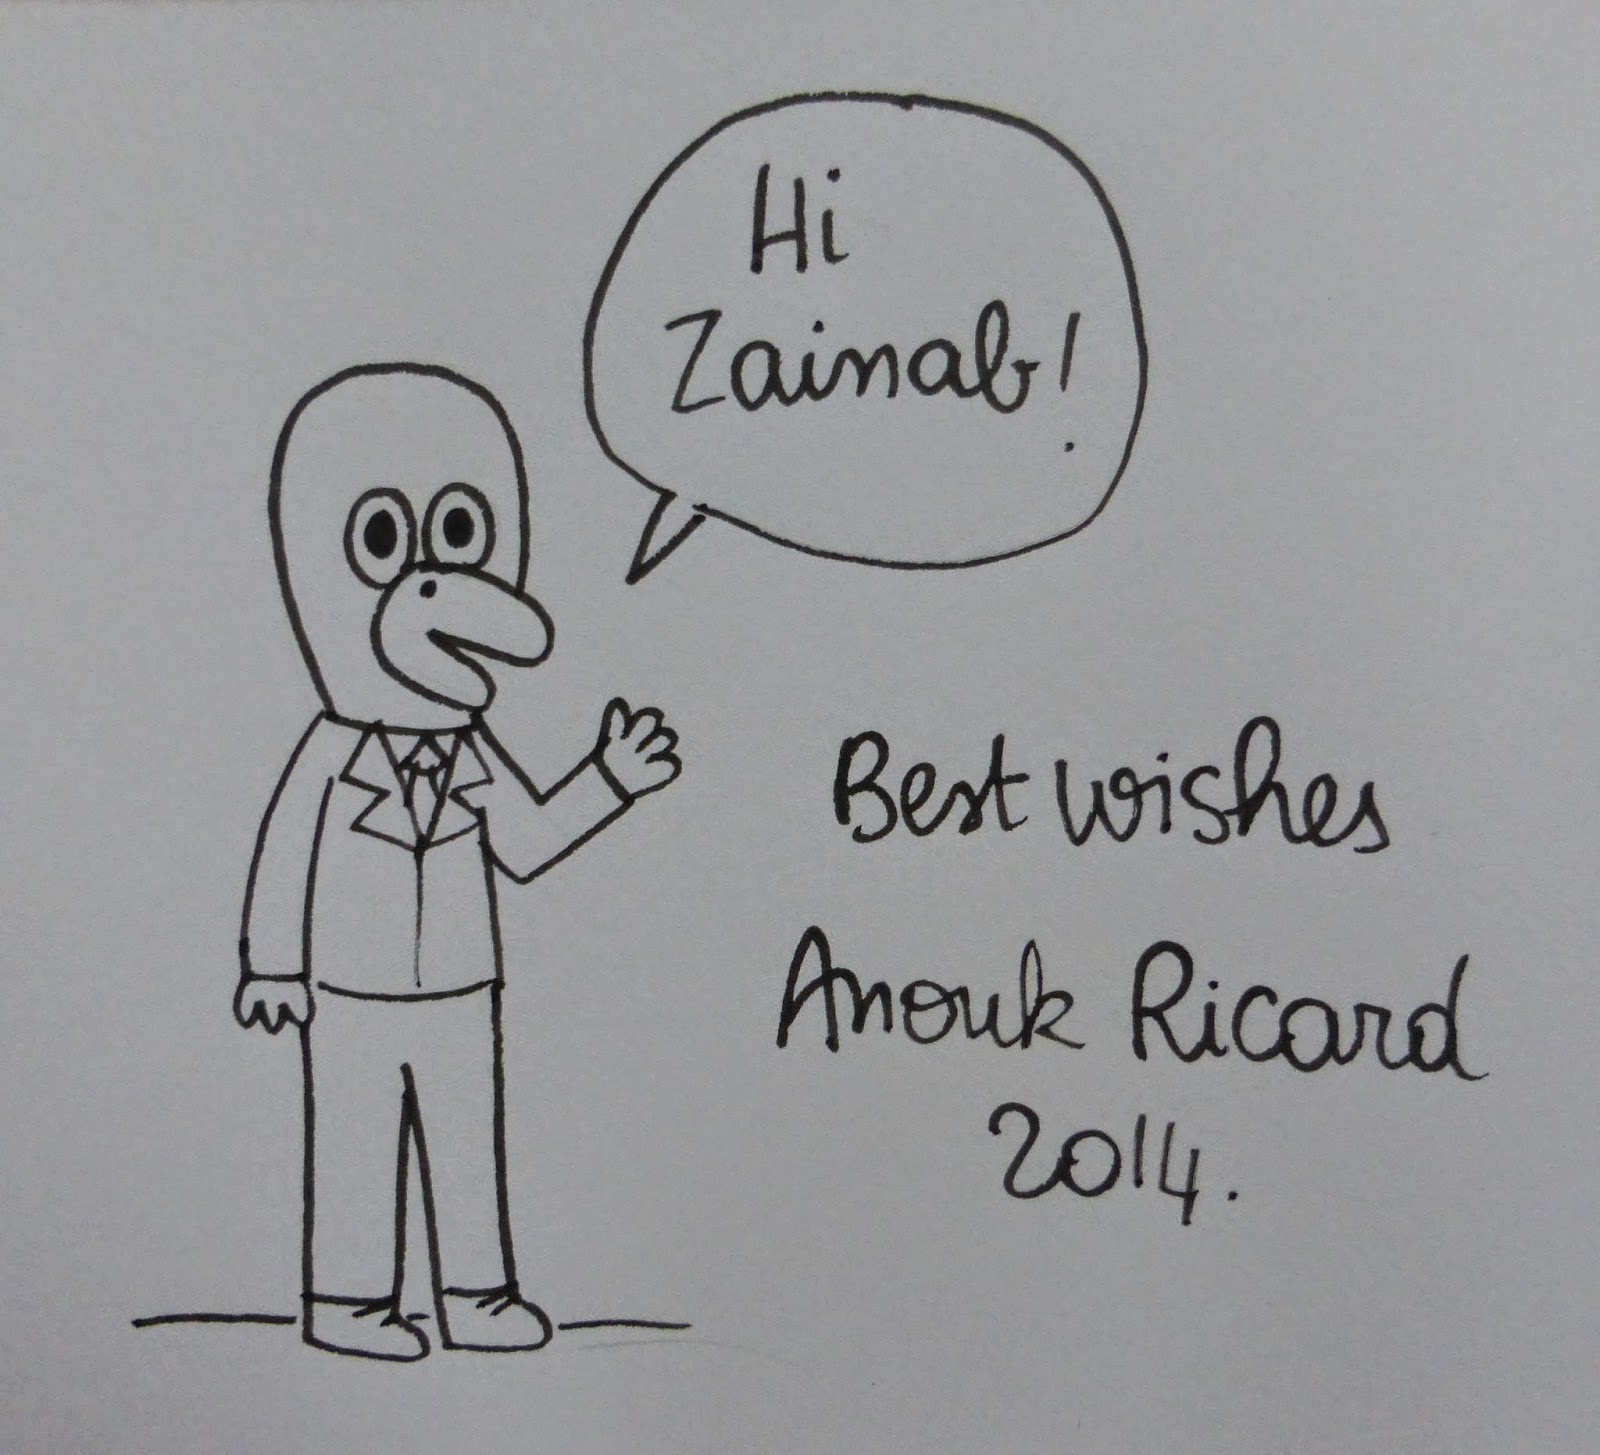 Hi
Zainab!
Best wishes
Anouk Ricard
2014.